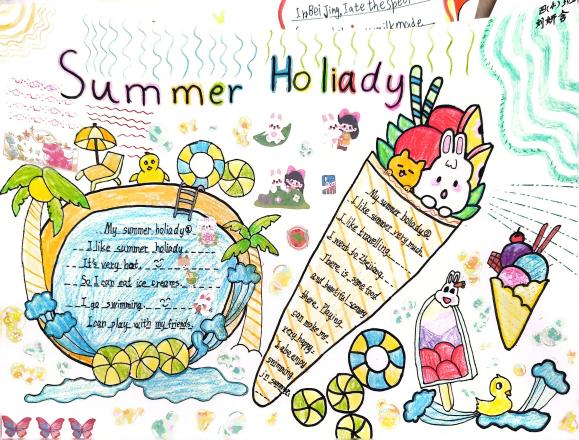 In Bei Jing, I ate the
milk made
四(4)
Summer Holiady
My summer holiady
I like summer holiady
It's very hot.
So I can eat ice creams.
I go swimming.
I can play with my friends.
My summer holiady
I like summer very much.
I like travelling.
I went to Zhejiang.
There is some food
and beautiful scenery
there. Playing
can make me
very happy.
I also enjoy
swimming
in summer.